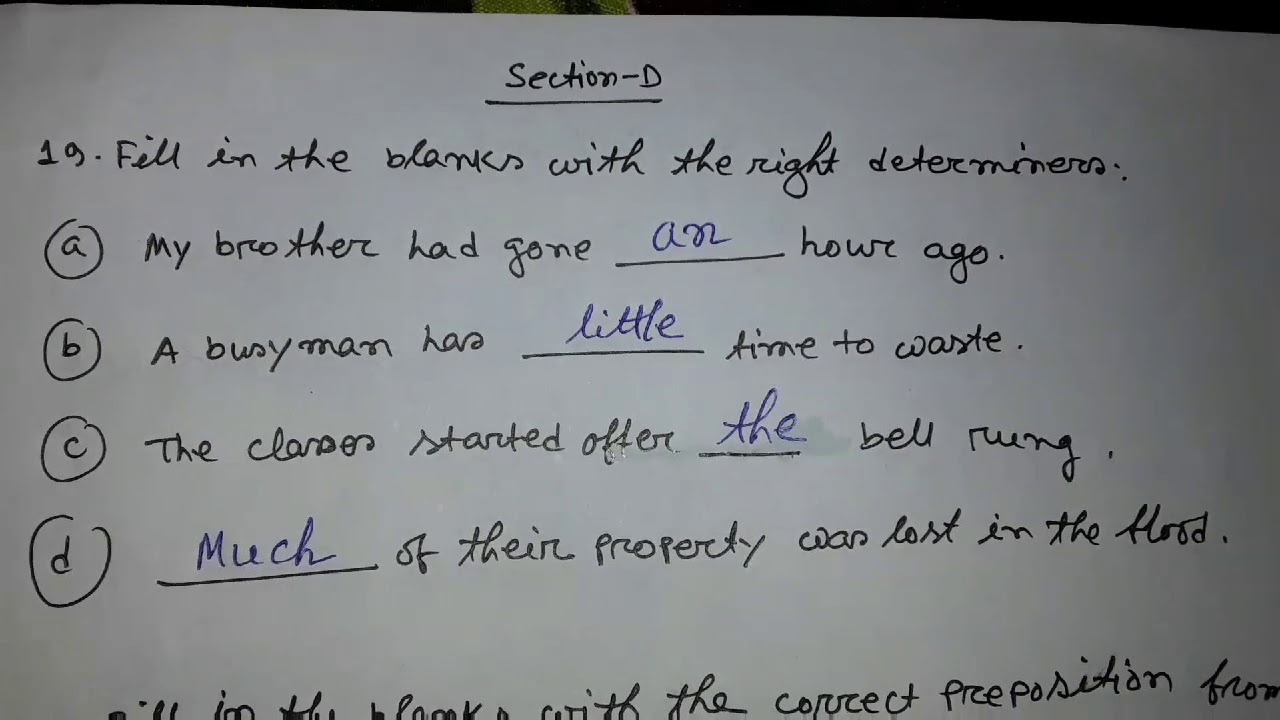 Section-D
19. Fill in the blanks with the right determiners.
(a) My brother had gone an hour ago.
(b) A busy man has little time to waste.
(c) The classes started offer the bell rung.
(d) Much of their property was lost in the flood.
Fill in the blanks with the correct preposition from